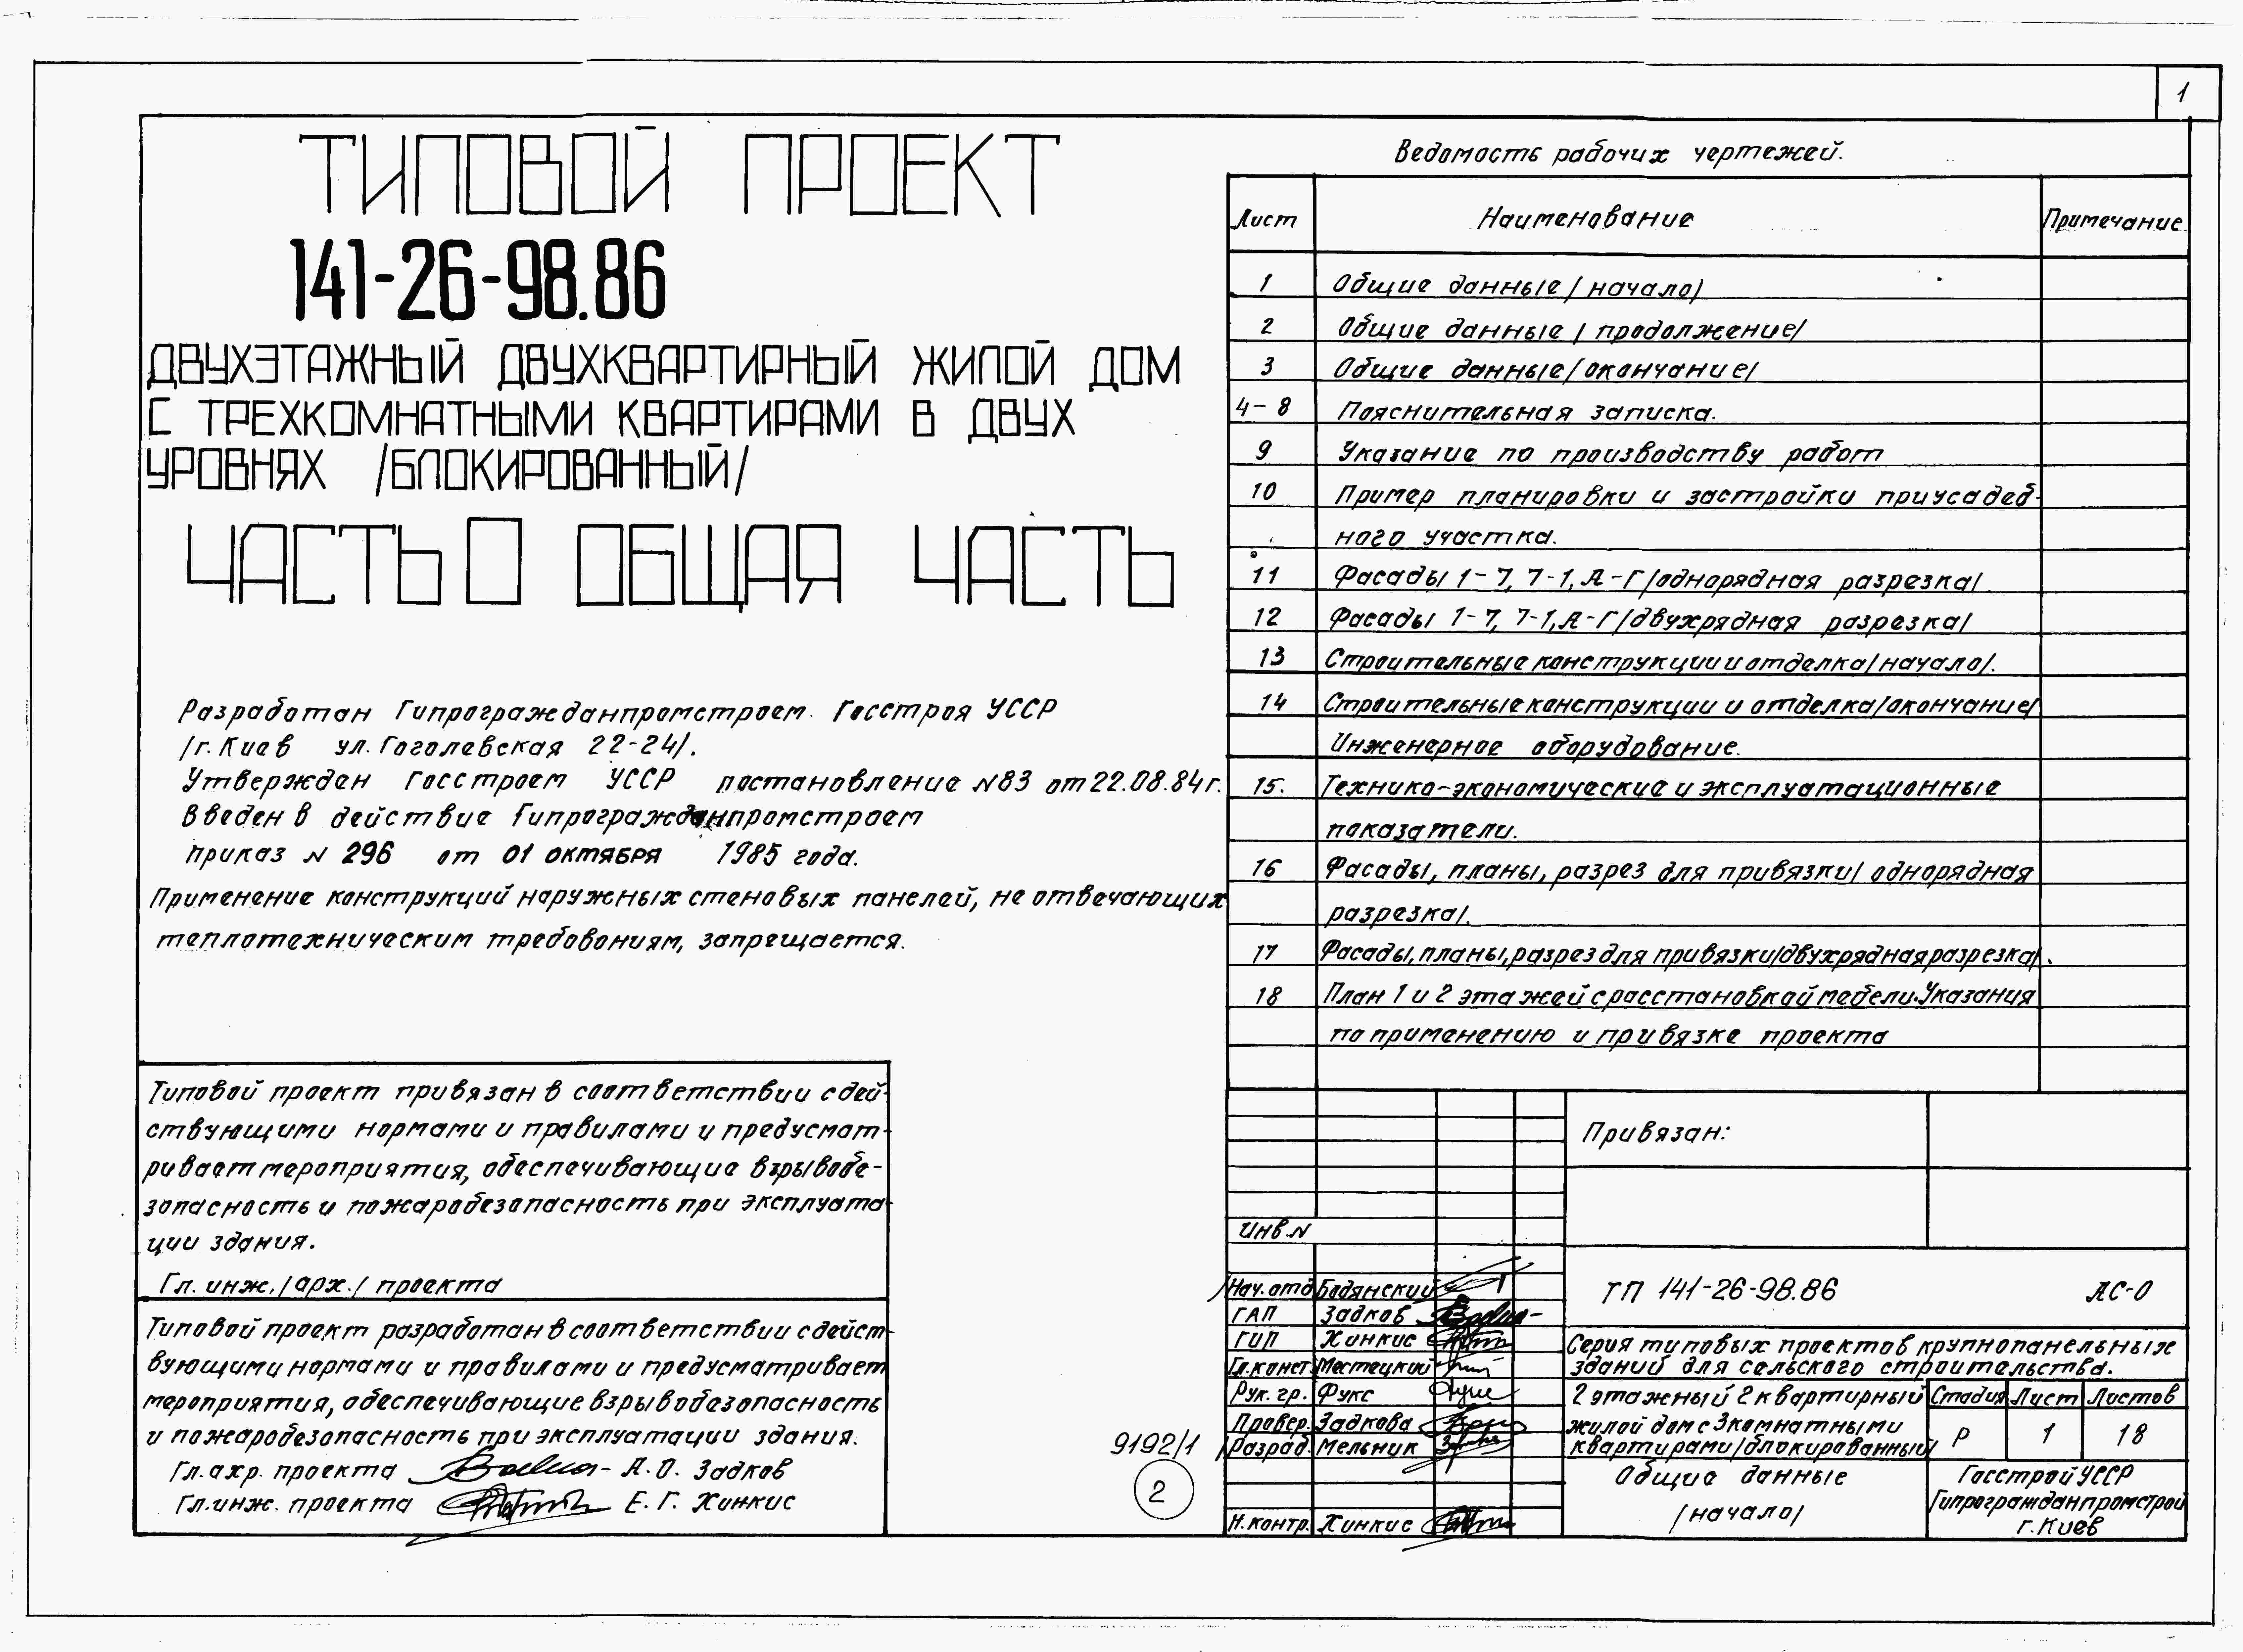 1
ТИПОВОЙ ПРОЕКТ
141-26-98.86
ДВУХЭТАЖНЫЙ ДВУХКВАРТИРНЫЙ ЖИЛОЙ ДОМ
С ТРЕХКОМНАТНЫМИ КВАРТИРАМИ В ДВУХ
УРОВНЯХ /БЛОКИРОВАННЫЙ/
ЧАСТЬ 0 ОБЩАЯ ЧАСТЬ
Разработан Гипрогражданпромстроем Госстроя УССР
/г. Киев ул. Гоголевская 22-24/.
Утвержден Госстроем УССР постановление N83 от 22.08.84 г.
Введен в действие Гипрогражданпромстроем
приказ N 296 от 01 ОКТЯБРЯ 1985 года.
Применение конструкций наружных стеновых панелей, не отвечающих
теплотехническим требованиям, запрещается.
Типовой проект привязан в соответствии с дей-
ствующими нормами и правилами и предусмат-
ривает мероприятия, обеспечивающие взрывобе-
зопасность и пожаробезопасность при эксплуата-
ции здания.
Гл. инж. /арх./ проекта
Типовой проект разработан в соответствии с дейст-
вующими нормами и правилами и предусматривает
мероприятия, обеспечивающие взрывобезопасность
и пожаробезопасность при эксплуатации здания.
Гл. ахр. проекта А. О. Задков
Гл. инж. проекта Е. Г. Хинкис
9192/1
2
Ведомость рабочих чертежей.
Лист Наименование Примечание
1 Общие данные /начало/
2 Общие данные /продолжение/
3 Общие данные /окончание/
4-8 Пояснительная записка.
9 Указание по производству работ
10 Пример планировки и застройки приусадеб-
ного участка.
11 Фасады 1-7, 7-1, А-Г /однорядная разрезка/
12 Фасады 1-7, 7-1, А-Г /двухрядная разрезка/
13 Строительные конструкции и отделка /начало/.
14 Строительные конструкции и отделка /окончание/
Инженерное оборудование.
15. Технико-экономические и эксплуатационные
показатели.
16 Фасады, планы, разрез для привязки /однорядная
разрезка/.
17 Фасады, планы, разрез для привязки /двухрядная разрезка/.
18 План 1 и 2 этажей с расстановкой мебели. Указания
по применению и привязке проекта
Привязан:
Инв. N
Нач. отд. Бадянский
ГАП Задков
ГИП Хинкис
Гл. конст. Местецкий
Рук. гр. Фукс
Провер. Задкова
Разраб. Мельник
Н. контр. Хинкис
ТП 141-26-98.86 АС-0
Серия типовых проектов крупнопанельных
зданий для сельского строительства.
2 этажный 2 квартирный
жилой дом с 3 комнатными
квартирами /блокированный/
Стадия Лист Листов
Р 1 18
Общие данные
/начало/
Госстрой УССР
Гипрогражданпромстрой
г. Киев